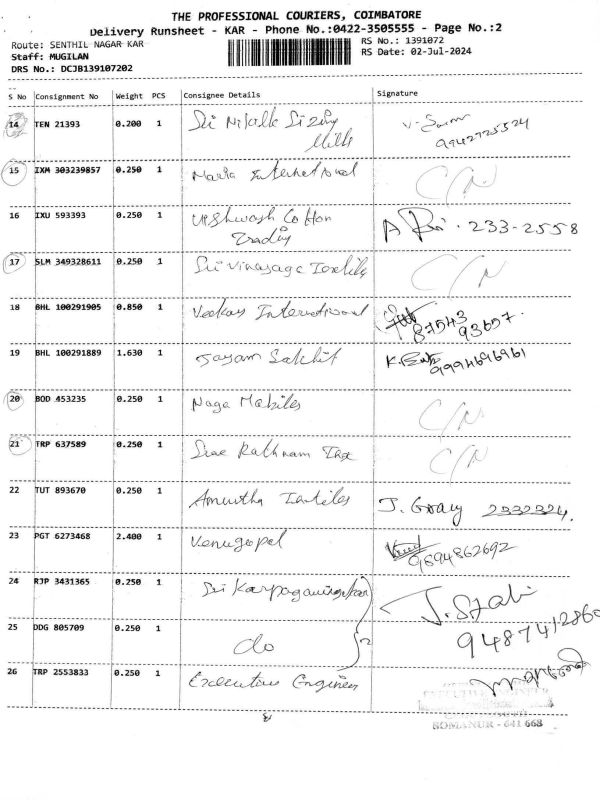 THE PROFESSIONAL COURIERS, COIMBATORE
Delivery Runsheet - KAR - Phone No.:0422-3505555 - Page No.:2
Route: SENTHIL NAGAR KAR
RS No.: 1391072
Staff: MUGILAN
RS Date: 02-Jul-2024
DRS No.: DCJB139107202
S No Consignment No Weight PCS Consignee Details Signature
14 TEN 21393 0.200 1 Sri Mills
9942725524
15 IXM 303239857 0.250 1 Maria International C/N
16 IXU 593393 0.250 1 Vishwash Cotton
Trading
A 233-2558
17 SLM 349328611 0.250 1 Sri Vinayaga Textiles C/N
18 BHL 100291905 0.850 1 Veekay International
87543
93657
19 BHL 100291889 1.630 1 Jayam K.
9994696961
20 BOD 453235 0.250 1 Naga C/N
21 TRP 637589 0.250 1 Sree Rathnam Tex C/N
22 TUT 893670 0.250 1 Amrutha Textiles J. 2332224.
23 PGT 6273468 2.400 1 Venugopal
9694862692
24 RJP 3431365 0.250 1 Sri
25 DDG 805709 0.250 1 do 2
9487412860
26 TRP 2553833 0.250 1 Executive Engineer
EXECUTIVE ENGINEER
SOMANUR - 641 668